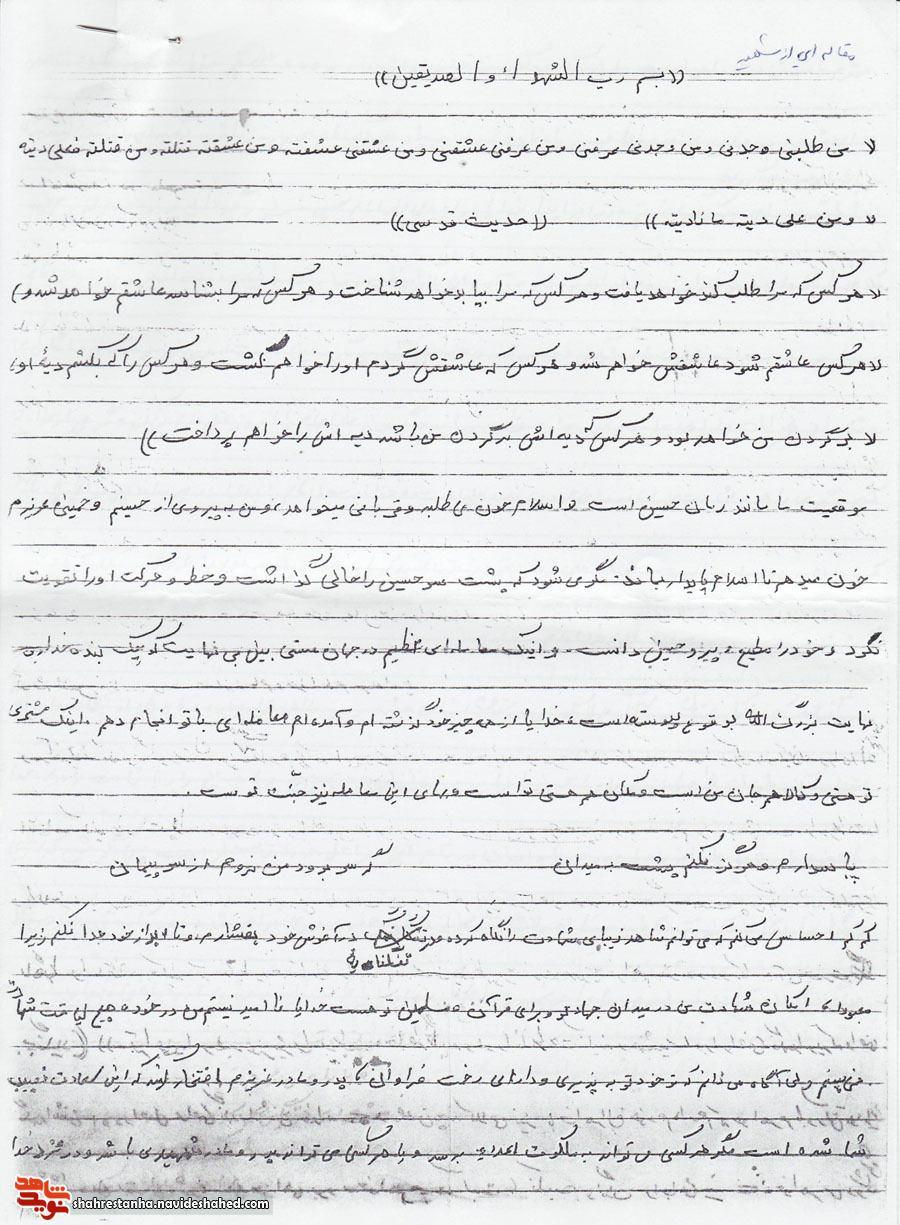 مقاله ای از شهید
((بسم رب الشهداء و الصدیقین))
(( من طلبنی وجدنی و من وجدنی عرفنی و من عرفنی عشقنی و من عشقنی عشقته و من عشقته قتلته و من قتلته فعلی دیته
(( و من علی دیته فانادیته )) ((حدیث قدسی))
(( هر کس که مرا طلب کند خواهد یافت و هر کس که مرا بیابد خواهد شناخت و هر کس که مرا بشناسد عاشقم خواهد شد و))
((هر کس عاشقم شود عاشقش خواهم شد و هر کس که عاشقش گردم او را خواهم کشت و هر کس را که بکشم دیه او))
(( بر گردن من خواهد بود و هر کس که دیه اش بر گردن من باشد دیه اش را خواهم پرداخت))
موقعیت ما مانند زمان حسین است و اسلام خون می طلبد و قربانی میخواهد، و من به پیروی از حسینم و خمینی عزیزم
خون میدهم تا اسلام پایدار بماند. مگر می شود که پشت سر حسین را خالی گذاشت و خط و حرکت او را تقویت
نکرد و خود را مطیع و پیرو حسین دانست. و اینک معامله ای عظیم در جهان هستی بین بی نهایت کوچک بنده خدا و بی
نهایت بزرگ الله به وقوع پیوسته است، خدایا از همه چیز خود گذشته ام و آمده ام معامله ای با تو انجام دهم. اینک مشتری
تو هستی و کالا هم جان من است و مکان هم هستی توست و بهای این معامله نیز جنّت توست.
پاسدارم و هرگز نکنم پشت به میدان گر سر برود من نروم از سر پیمان
کم کم احساس می کنم که می توانم شاهد زیبای شهادت را نگاه کرده و در آغوش خود بفشارم و تا ابد از خود جدا نکنم زیرا
معبودا، امکان شهادت من در میدان جهاد تو و برای تو هست خدایا ناامید نیستم من در خود هیچ لیاقت شهادت
نمی بینم ولی آگاه می دانم که تو خود توبه پذیری و دارای رحمت فراوان پدر و مادر عزیزم افتخار کنید که این سعادت نصیب
شما شده است مگر هر کسی می تواند به ملکوت اعلا برسد و یا هر کسی می تواند پدر و مادر شهیدی باشد و در نزد خدا
نوید شاهد
shahrestanha.navideshahed.com